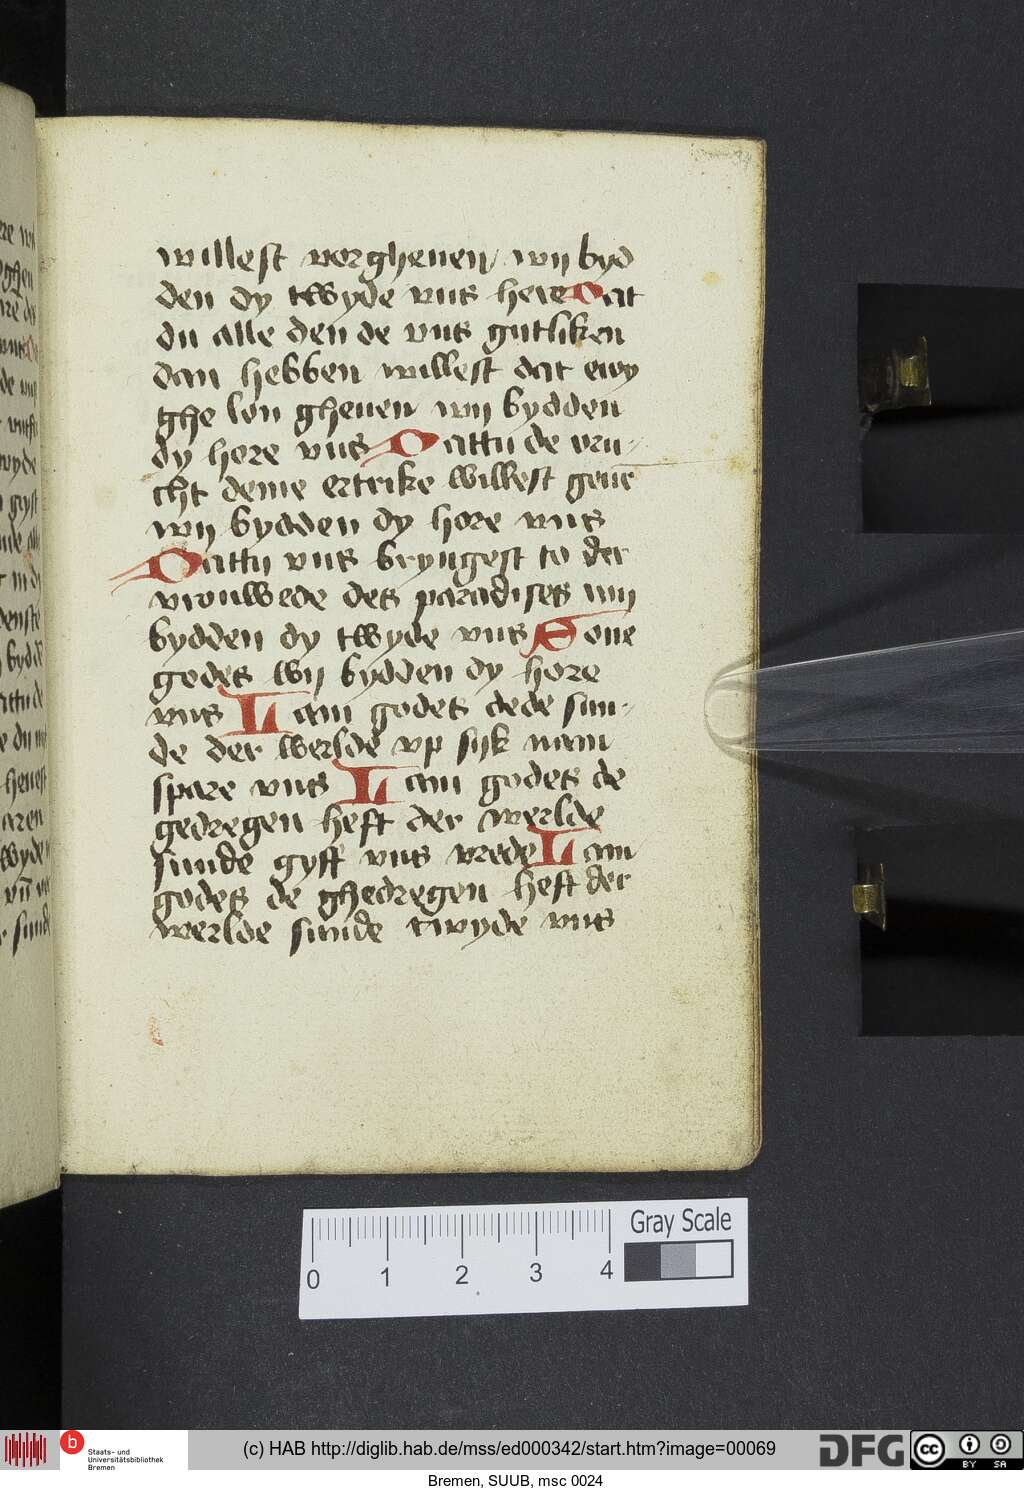 34
willest vorgheuen, wij byd
den dy twyde vns here Dat
du alle den de vns gutliken
dan hebben willest dat ewy
ghe lon gheuen wij bydden
dy hore vns Dattu de vru-
cht deme ertrike willest geue
wij bydden dy hore vns
Dattu vns bryngest to der
vrouwede des paradises wij
bydden dy twyde vns Sone
godes wij bydden dy hore
vns Lam godes dede sun-
de der werlde vp sijk nam
spare vns Lam godes de
gedregen heft der werlde
sunde gyff vns vrede Lam
godes de ghedregen heft der
werlde sunde twyde vns
0 1 2 3 4
Gray Scale
b
Staats- und
Universitätsbibliothek
Bremen
(c) HAB http://diglib.hab.de/mss/ed000342/start.htm?image=00069
DFG
cc BY SA
Bremen, SUUB, msc 0024